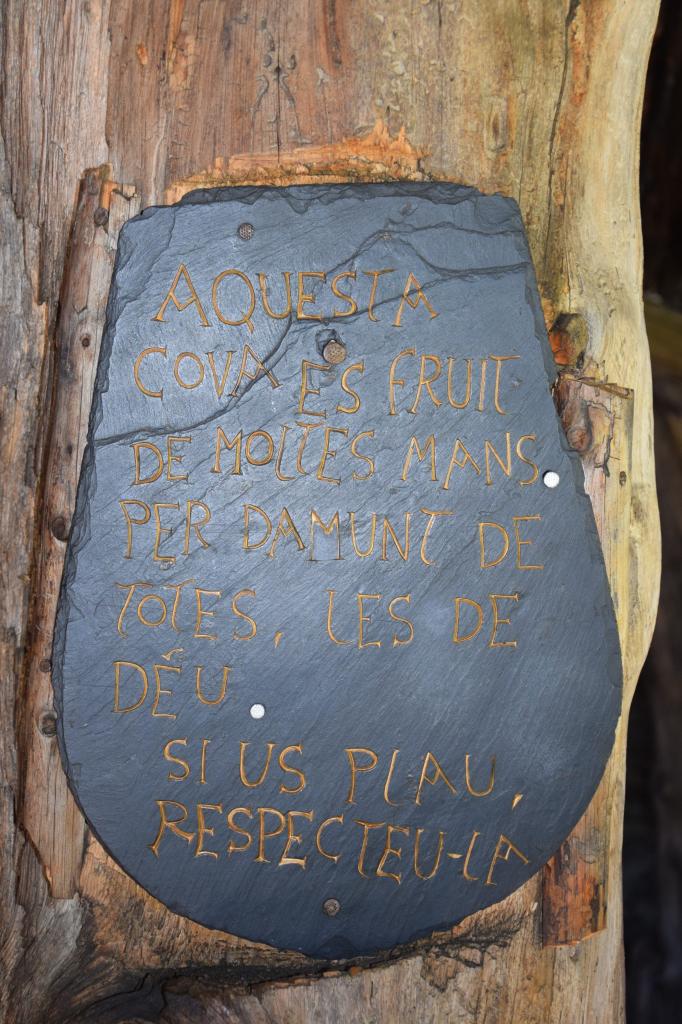 AQUESTA
COVA ES FRUIT
DE MOLTES MANS
PER DAMUNT DE
TOTES, LES DE
DÉU
SI US PLAU,
RESPECTEU-LA